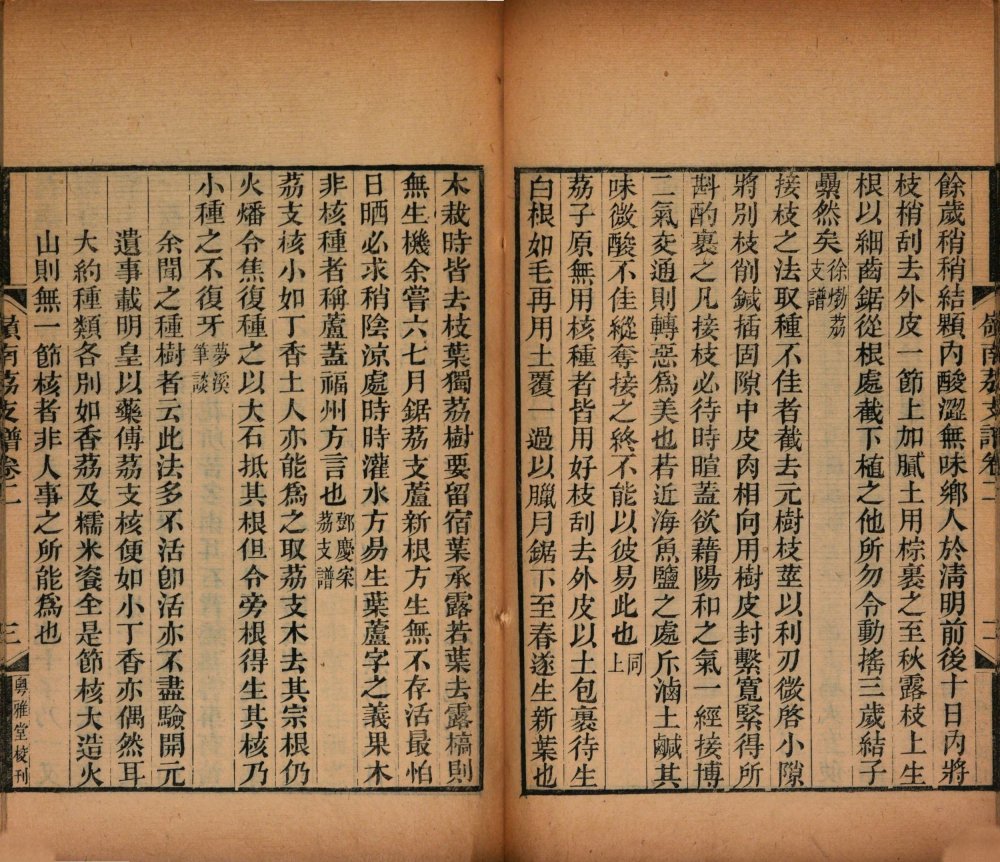 餘歲稍稍結顆內酸澀無味鄉人於淸明前後十日內將
枝梢刮去外皮一節上加膩土用棕裹之至秋露枝上生
根以細齒鋸從根處截下植之他所勿令動搖三歲結子
纍然矣徐𤊹荔支譜
接枝之法取種不佳者截去元樹枝莖以利刃微啓小隙
將別枝削鍼揷固隙中皮肉相向用樹皮封繫寬緊得所
斟酌裹之凡接枝必待時暄蓋欲藉陽和之氣一經接博
二氣交通則轉惡爲美也若近海魚鹽之處斥滷土鹹其
味微酸不佳縱奪接之終不能以彼易此也同上
荔子原無用核種者皆用好枝刮去外皮以土包裹待生
白根如毛再用土覆一過以臘月鋸下至春遂生新葉也
嶺南荔支譜卷二
二
木栽時皆去枝葉獨荔樹要留宿葉承露若葉去露槁則
無生機余嘗六七月鋸荔支蘆新根方生無不存活最怕
日晒必求稍陰涼處時時灌水方易生葉蘆字之義果木
非核種者稱蘆蓋福州方言也鄧慶寀荔支譜
荔支核小如丁香土人亦能爲之取荔支木去其宗根仍
火燔令焦復種之以大石抵其根但令旁根得生其核乃
小種之不復牙夢溪筆談
余聞之種樹者云此法多不活卽活亦不盡驗開元
遺事載明皇以藥傅荔支核便如小丁香亦偶然耳
大約種類各別如香荔及糯米餈全是節核大造火
山則無一節核者非人事之所能爲也
嶺南荔支譜卷二
三
粵雅堂校刊